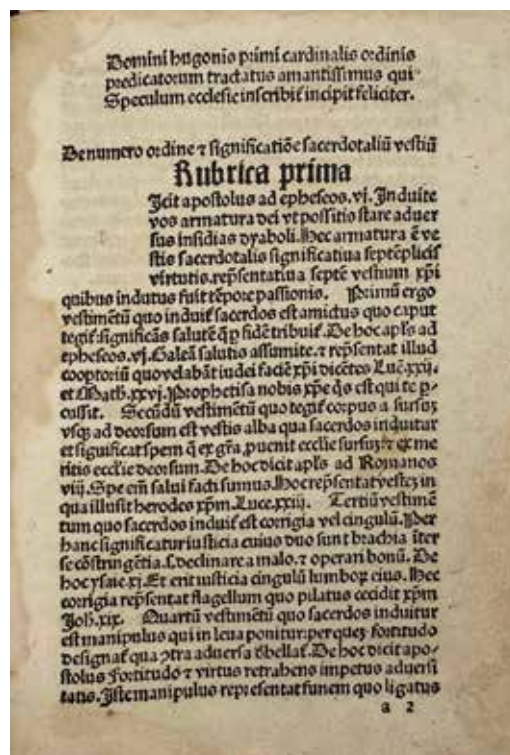 Domini hugonis primi cardinalis ordinis
predicatorum tractatus amantissimus qui
Speculum ecclesie inscribit̄ incipit feliciter.
De numero ordine ⁊ significatiōe sacerdotaliū vestiū
Rubrica prima
Icit apostolus ad epheseos. vj. Induite
vos armatura dei vt possitis stare aduer
sus insidias dyaboli. Hec armatura ē ve
stis sacerdotalis significatiua septēplicis
virtutis. rep̄sentatiua septē vestium xp̄i
quibus indutus fuit tēpore passionis. Primū ergo
vestimētū quo induit̄ sacerdos est amictus quo caput
tegit̄. significās salutē q̄ ꝑ fidē tribuit̄. De hoc apl̄s ad
epheseos. vj. Galeā salutis assumite. ⁊ rep̄sentat illud
cooptoriū quo velabāt iudei faciē xp̄i dicētes Luc̄. xxij.
et Math. xxvj. Prophetisa nobis xp̄e q̄s est qui te ꝑ-
cussit. Secūdū vestimētū quo tegit̄ corpus a sursuꝫ
vsqꝫ ad deorsum est vestis alba qua sacerdos induitur
et significat spem q̄ ex gr̄a ꝓuenit eccl̄ie sursuꝫ ⁊ ex me
ritis eccl̄ie deorsum. De hoc dicit apl̄s ad Romanos
viij. Spe em̄ salui facti sumus. Hoc rep̄sentat vesteꝫ in
qua illusit herodes xp̄m. Luce. xxiij. Tertiū vestimē
tum quo sacerdos induit̄ est corrigia vel cingulū. Per
hanc significatur iusticia cuius duo sunt brachia īter
se cōstringētia. s. declinare a malo. ⁊ operari bonū. De
hoc ysaie. xj. Et erit iusticia cingulū lumboꝝ eius. Hec
corrigia rep̄sentat flagellum quo pilatus cecidit xp̄m
Joh̄. xix. Quartū vestimētū quo sacerdos induitur
est manipulus qui in leua ponitur: per queꝫ fortitudo
designat̄ qua ꝯtra aduersa d̄bellat̄. De hoc dicit apo-
stolus fortitudo ⁊ virtus retrahens impetus aduersi
tatis. Iste manipulus representat funem quo ligatus
a 2